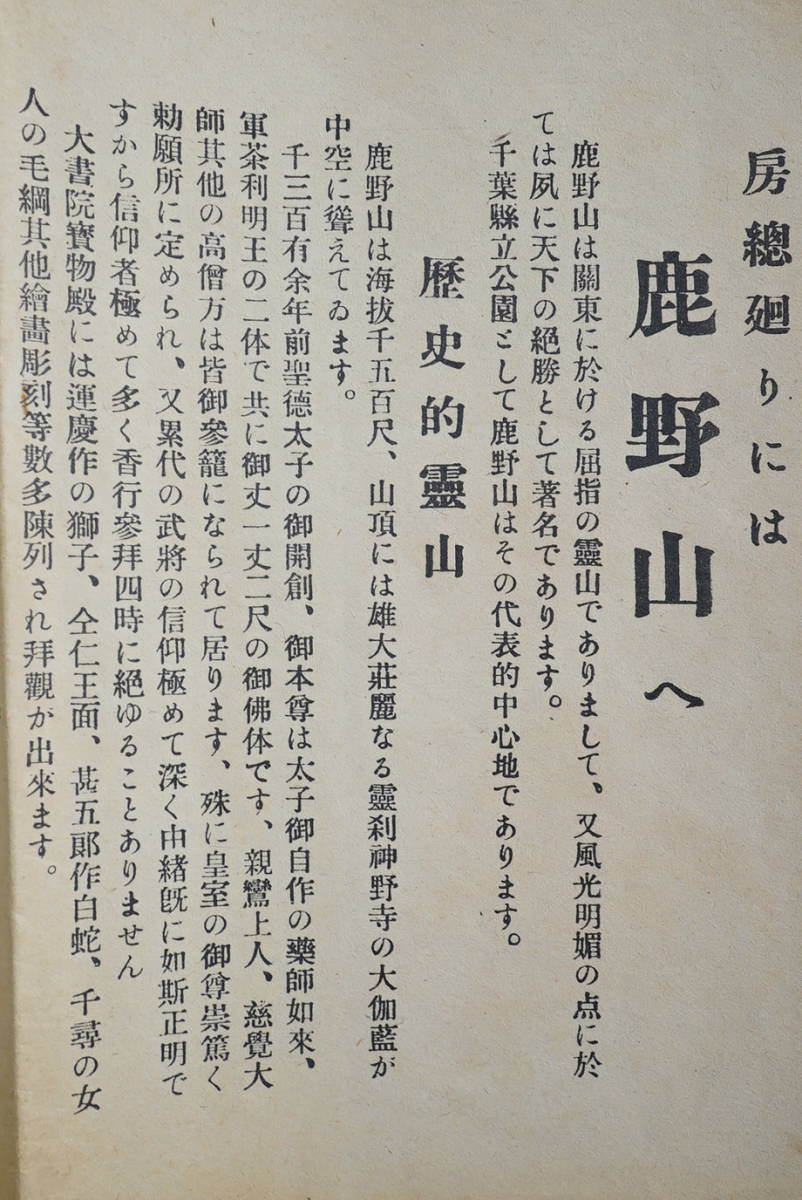 房總廻りには
鹿野山へ
鹿野山は關東に於ける屈指の靈山でありまして、又風光明媚の点に於
ては夙に天下の絶勝として著名であります。
千葉縣立公園として鹿野山はその代表的中心地であります。
歷史的靈山
鹿野山は海拔千五百尺、山頂には雄大莊麗なる靈刹神野寺の大伽藍が
中空に聳えてゐます。
千三百有余年前聖德太子の御開創、御本尊は太子御自作の藥師如來、
軍茶利明王の二体で共に御丈一丈二尺の御佛体です、親鸞上人、慈覺大
師其他の高僧方は皆御參籠になられて居ります、殊に皇室の御尊崇篤く
勅願所に定められ、又累代の武將の信仰極めて深く由緖旣に如斯正明で
すから信仰者極めて多く香行參拜四時に絶ゆることありません
大書院寳物殿には運慶作の獅子、仝仁王面、甚五郞作白蛇、千尋の女
人の毛綱其他繪畵彫刻等數多陳列され拜觀が出來ます。